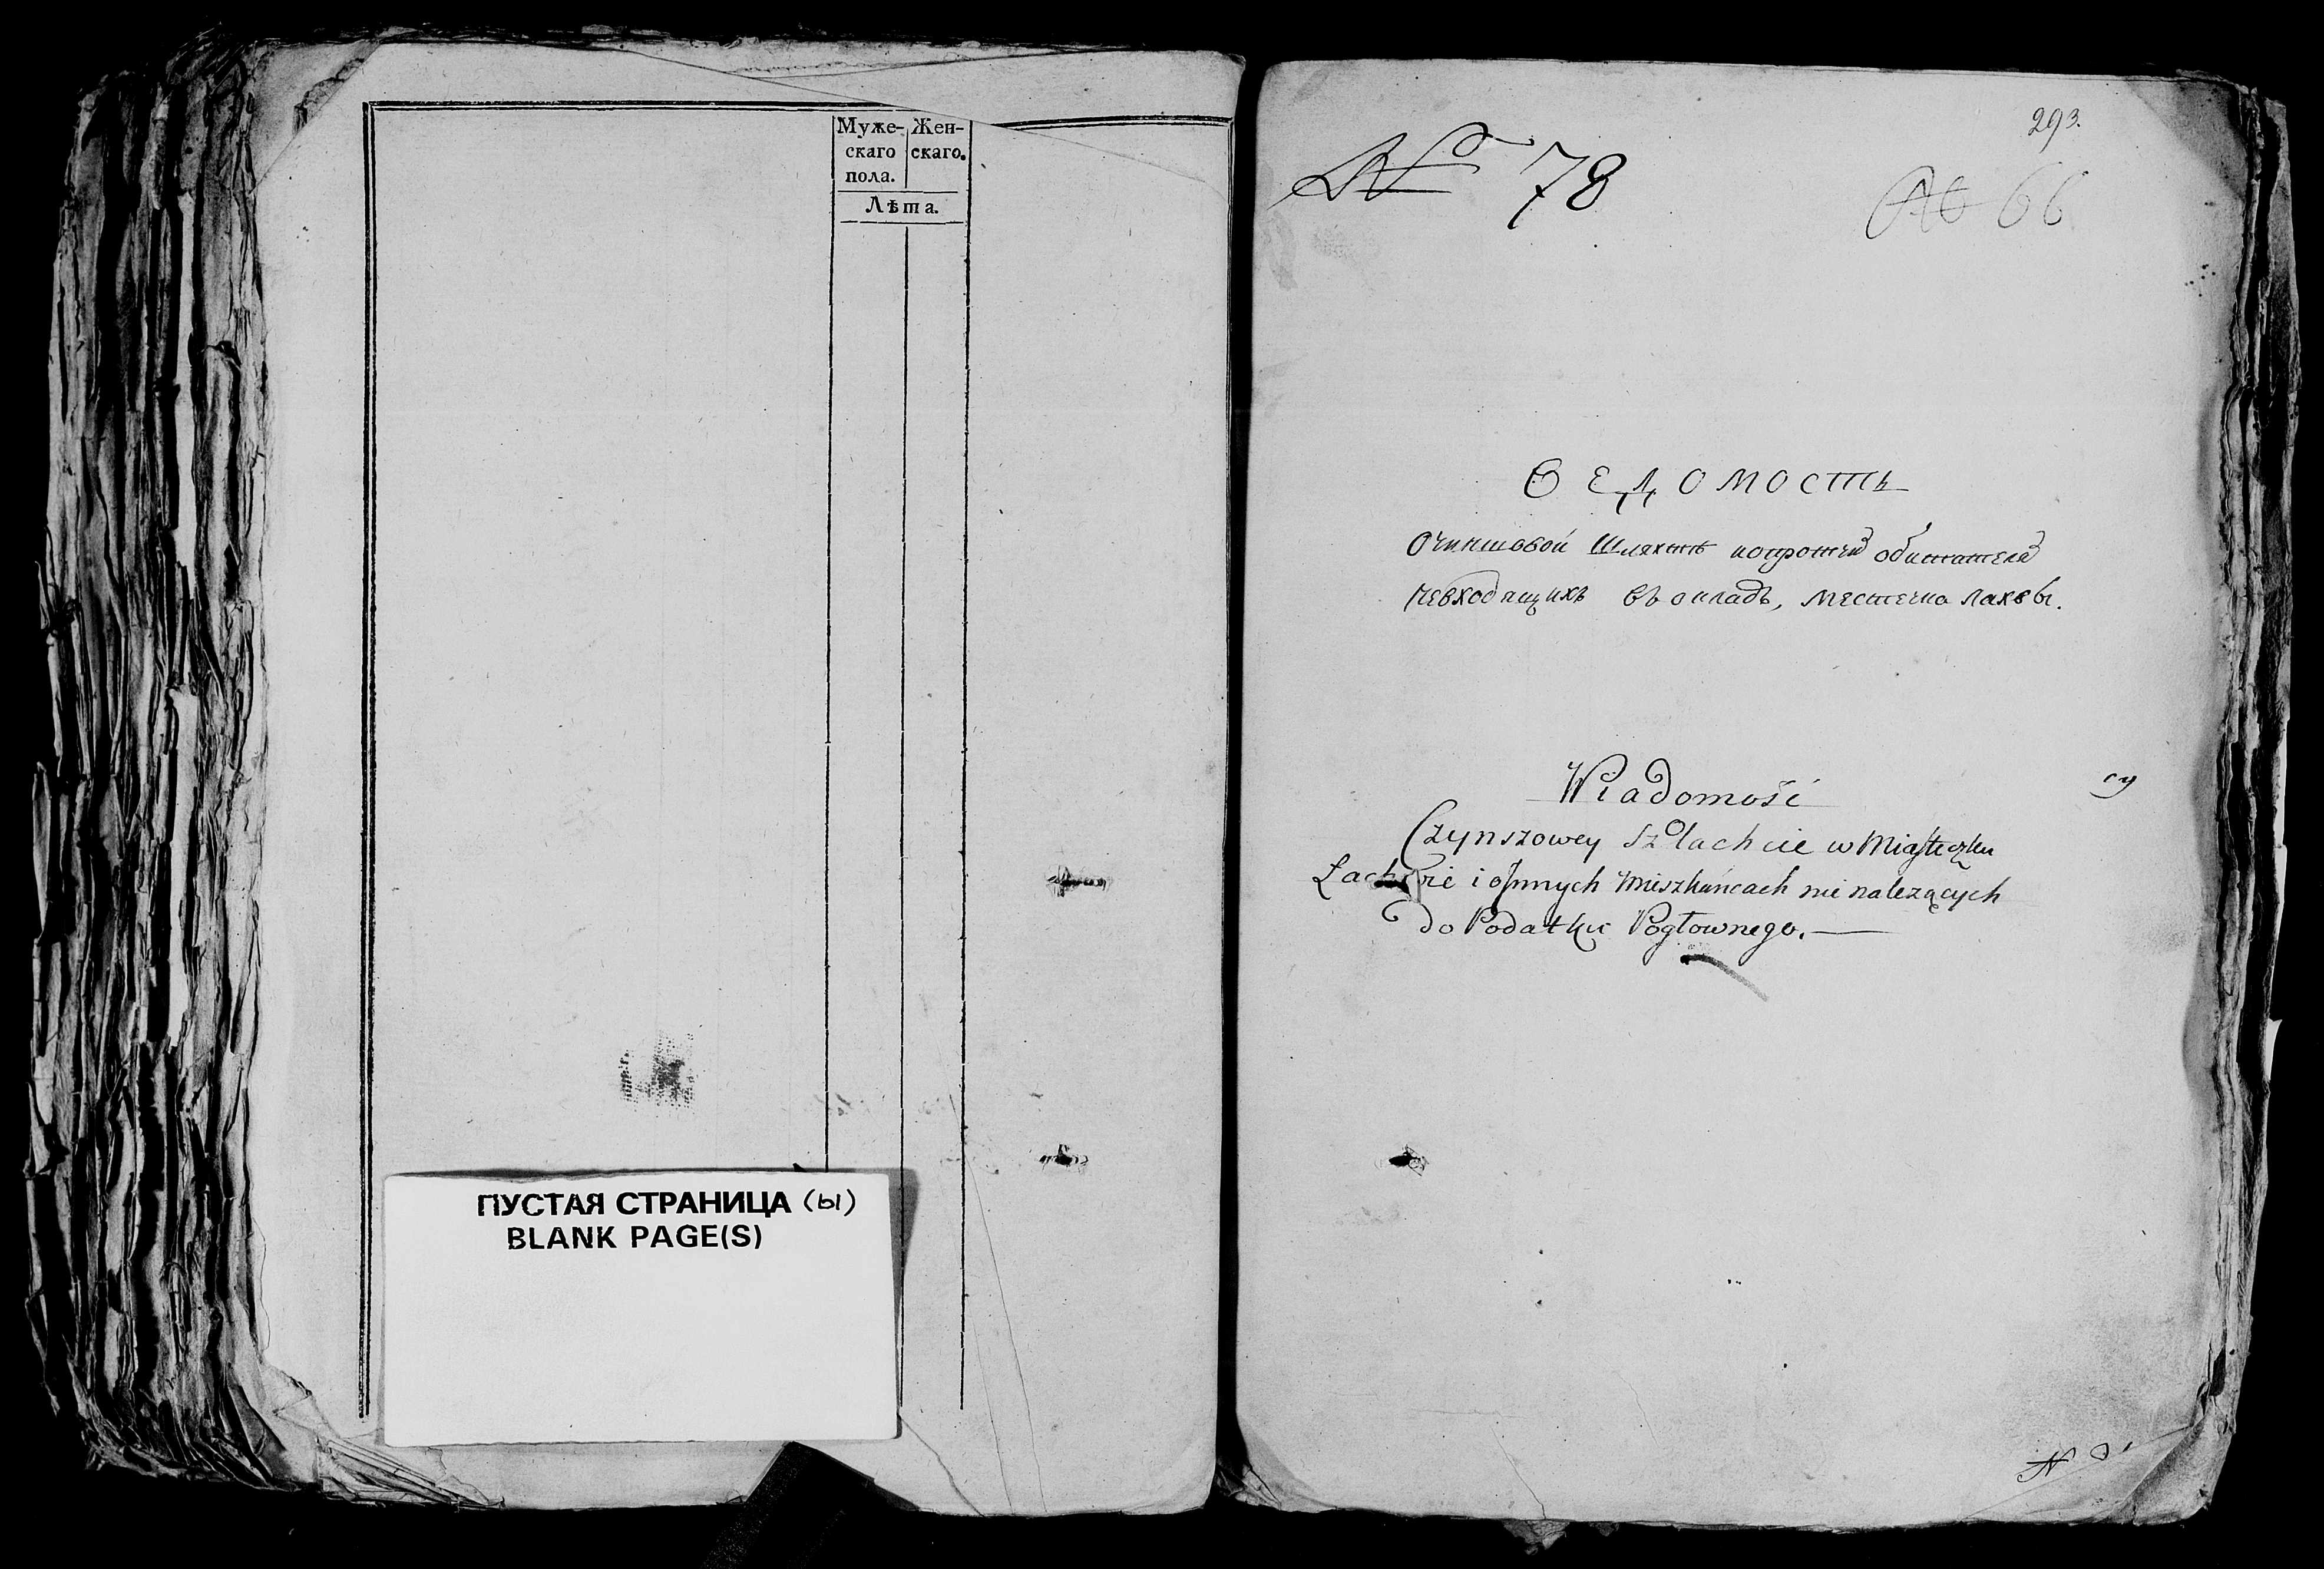 Муже- Жен-
скаго скаго.
пола.
Лѣта.
ПУСТАЯ СТРАНИЦА (ы)
BLANK PAGE(S)
293.
№ 78
№ 66
ВЕДОМОСТЬ
Очиншовой Шляхтѣ ипротчей обитателей
невходящихъ въ окладъ, местечка лахвы.
Wiadomość
Czynszowey Szlachcie w Miasteczku
i Jnnych Mieszkańcach nie nalezących
do Podatku Pogłownego.